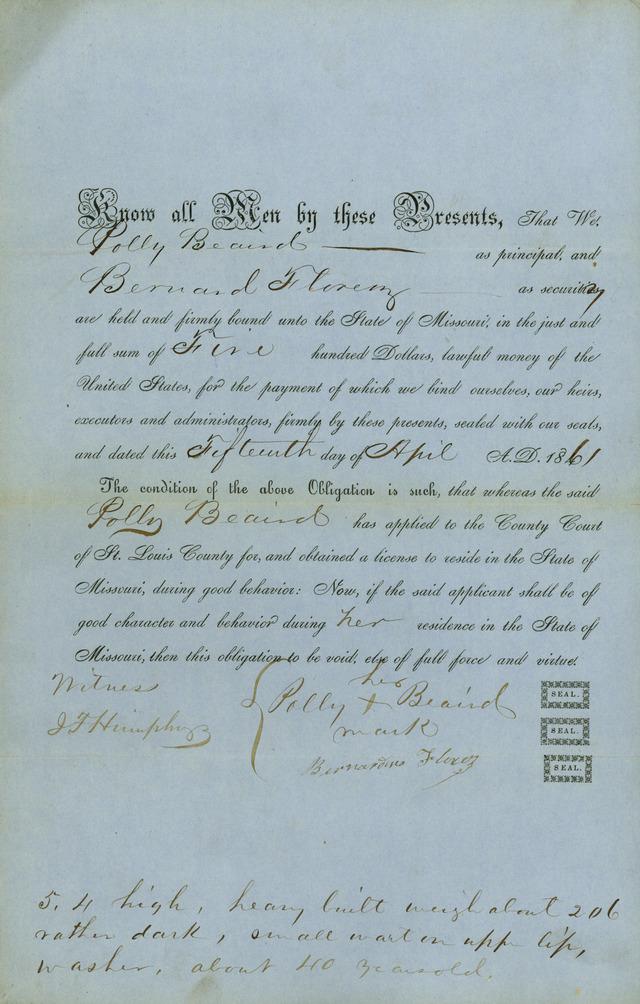 Know all Men by these Presents, That We,
Polly Beaird as principal, and
Bernard Florenz as security
are held and firmly bound unto the State of Missouri, in the just and
full sum of Five hundred Dollars, lawful money of the
United States, for the payment of which we bind ourselves, our heirs,
executors and administrators, firmly by these presents, sealed with our seals,
and dated this Fifteenth day of April A.D. 1861
The condition of the above Obligation is such, that whereas the said
Polly Beaird has applied to the County Court
of St. Louis County for, and obtained a license to reside in the State of
Missouri, during good behavior: Now, if the said applicant shall be of
good character and behavior during her residence in the State of
Missouri, then this obligation to be void, else of full force and virtue.
Witness
J F Humphry
her
Polly + Beaird
mark
SEAL.
SEAL.
Bernardus Florenz
SEAL.
5. 4 high, heavy built weigh about 206
rather dark, small wart on upp lip,
washer, about 40 years old.